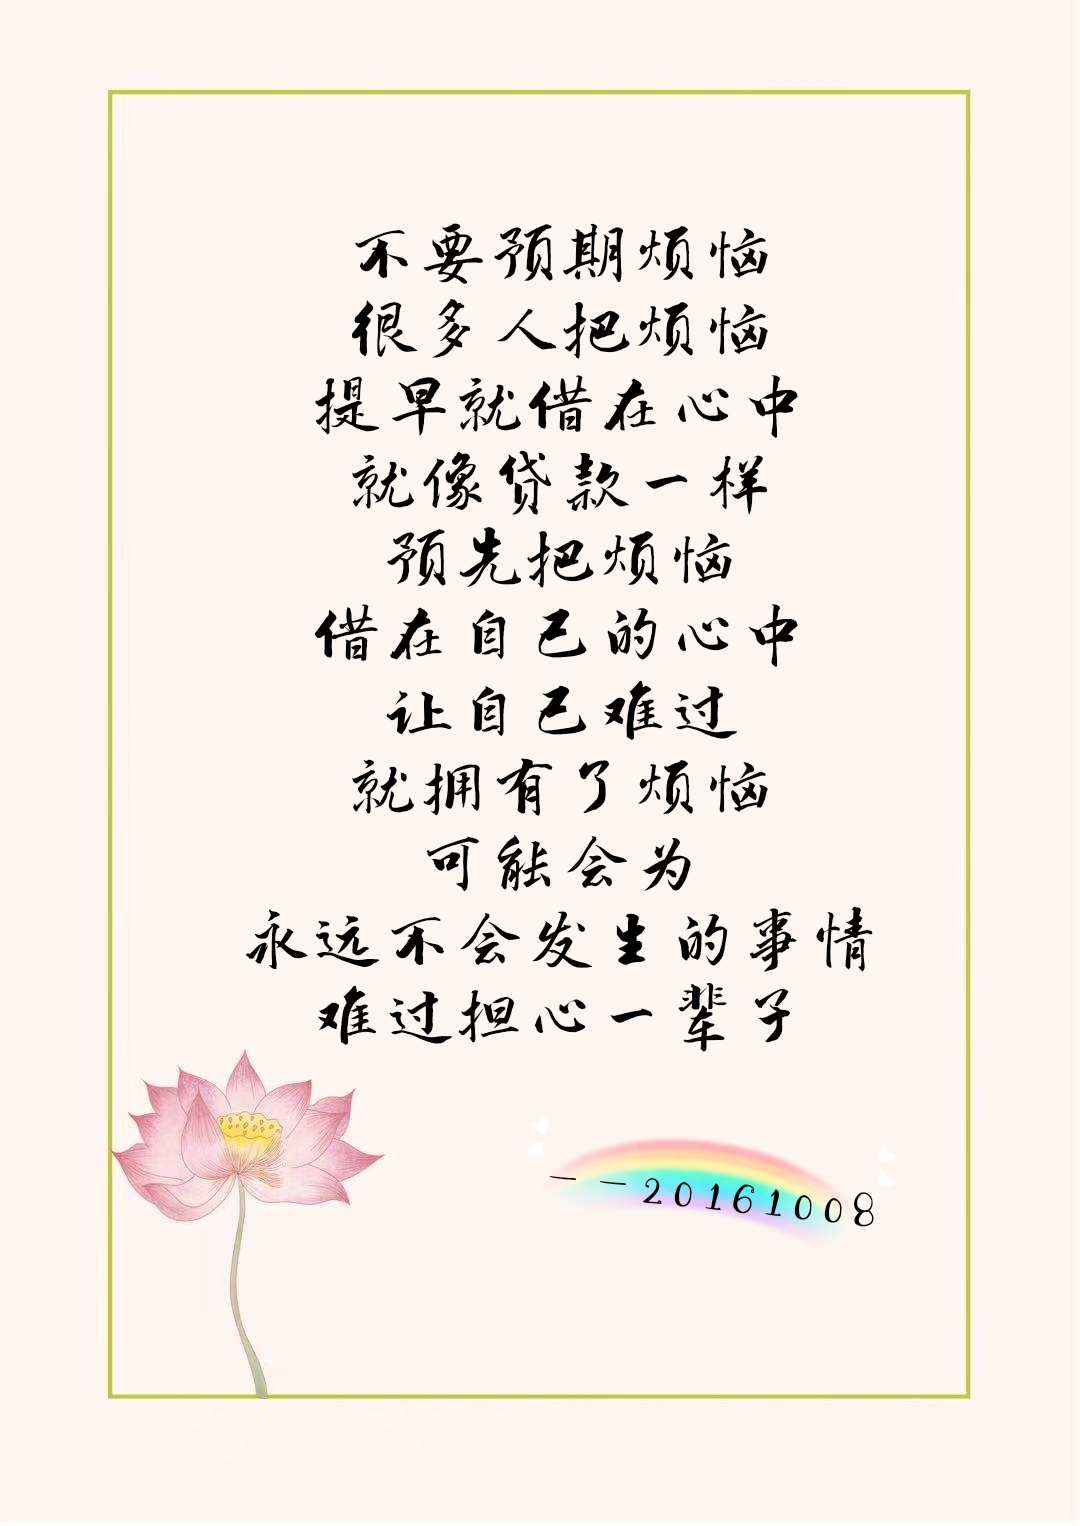 不要预期烦恼
很多人把烦恼
提早就借在心中
就像贷款一样
预先把烦恼
借在自己的心中
让自己难过
就拥有了烦恼
可能会为
永远不会发生的事情
难过担心一辈子
——20161008